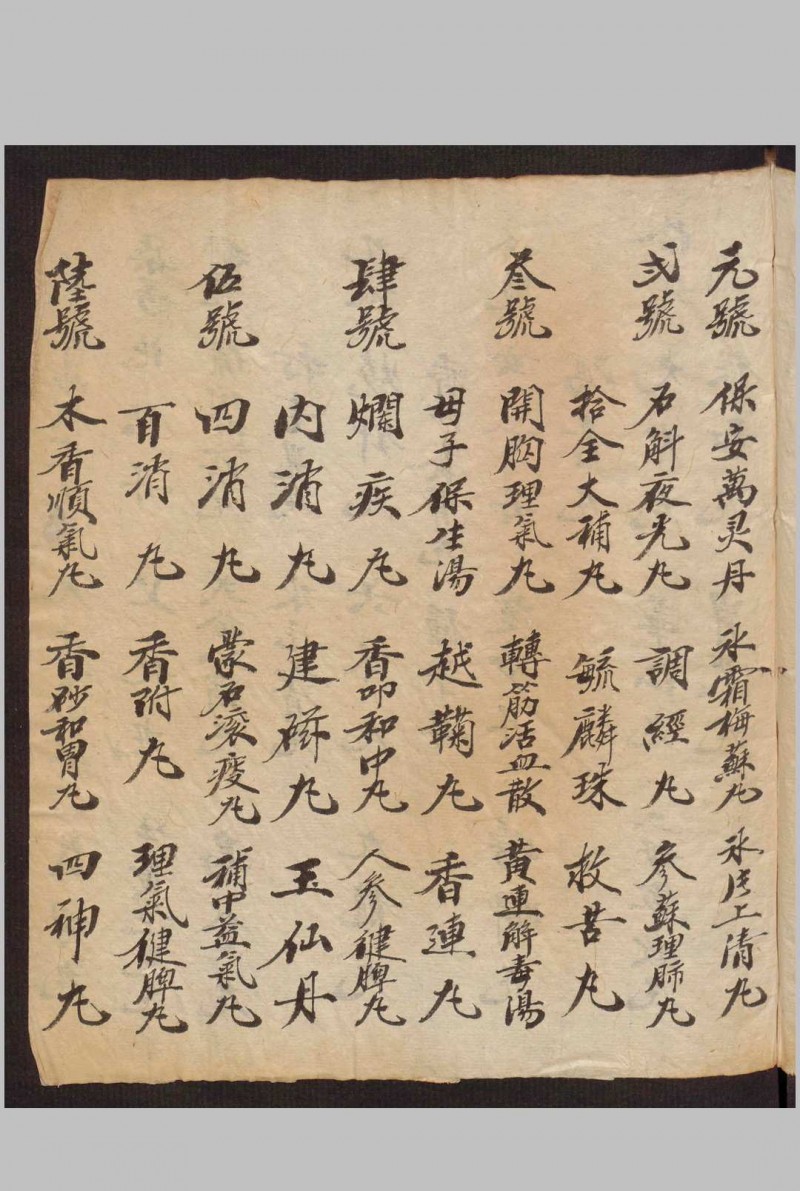 元號 保安萬灵丹 氷霜梅蘇丸 上清丸
弍號 石斛夜光丸 調經丸 參蘇理肺丸
拾全大補丸 毓麟珠 救苦丸
叁號 開胸理氣丸 轉筋活血散 黃連解毒湯
母子保生湯 越鞠丸 香連丸
肆號 爛疾丸 香叩和中丸 人參健脾丸
内消丸 建磁丸 玉仙丹
伍號 四消丸 蒙石滚痰丸 補中益氣丸
百消丸 香附丸 理氣健脾丸
陸號 木香順氣丸 香砂和胃丸 四神丸